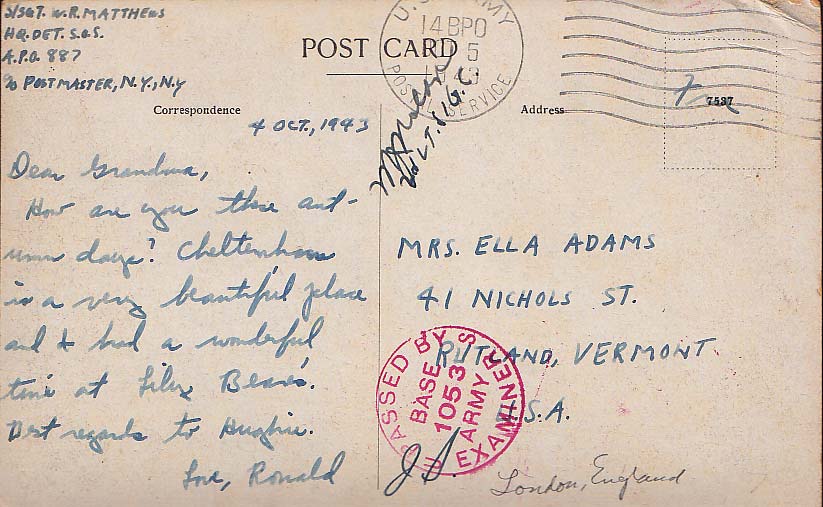 S/SGT. W.R. MATTHEWS
HQ. DET. S.O.S.
A.P.O. 887
c/o POSTMASTER, N.Y., N.Y
POST CARD
U.S. ARMY
14 BPO
5
POSTAL SERVICE
7537
Free
Correspondence
Address
4 OCT., 1943
Lt. SIG. C.
Dear Grandma,
How are you these aut-
umn days? Cheltenham
is a very beautiful place
and I had a wonderful
time at Lily Beavis'.
Best regards to Hughie.
Love, Ronald
MRS. ELLA ADAMS
41 NICHOLS ST.
RUTLAND, VERMONT
U.S.A.
PASSED BY
BASE
1053
ARMY
EXAMINER
London, England